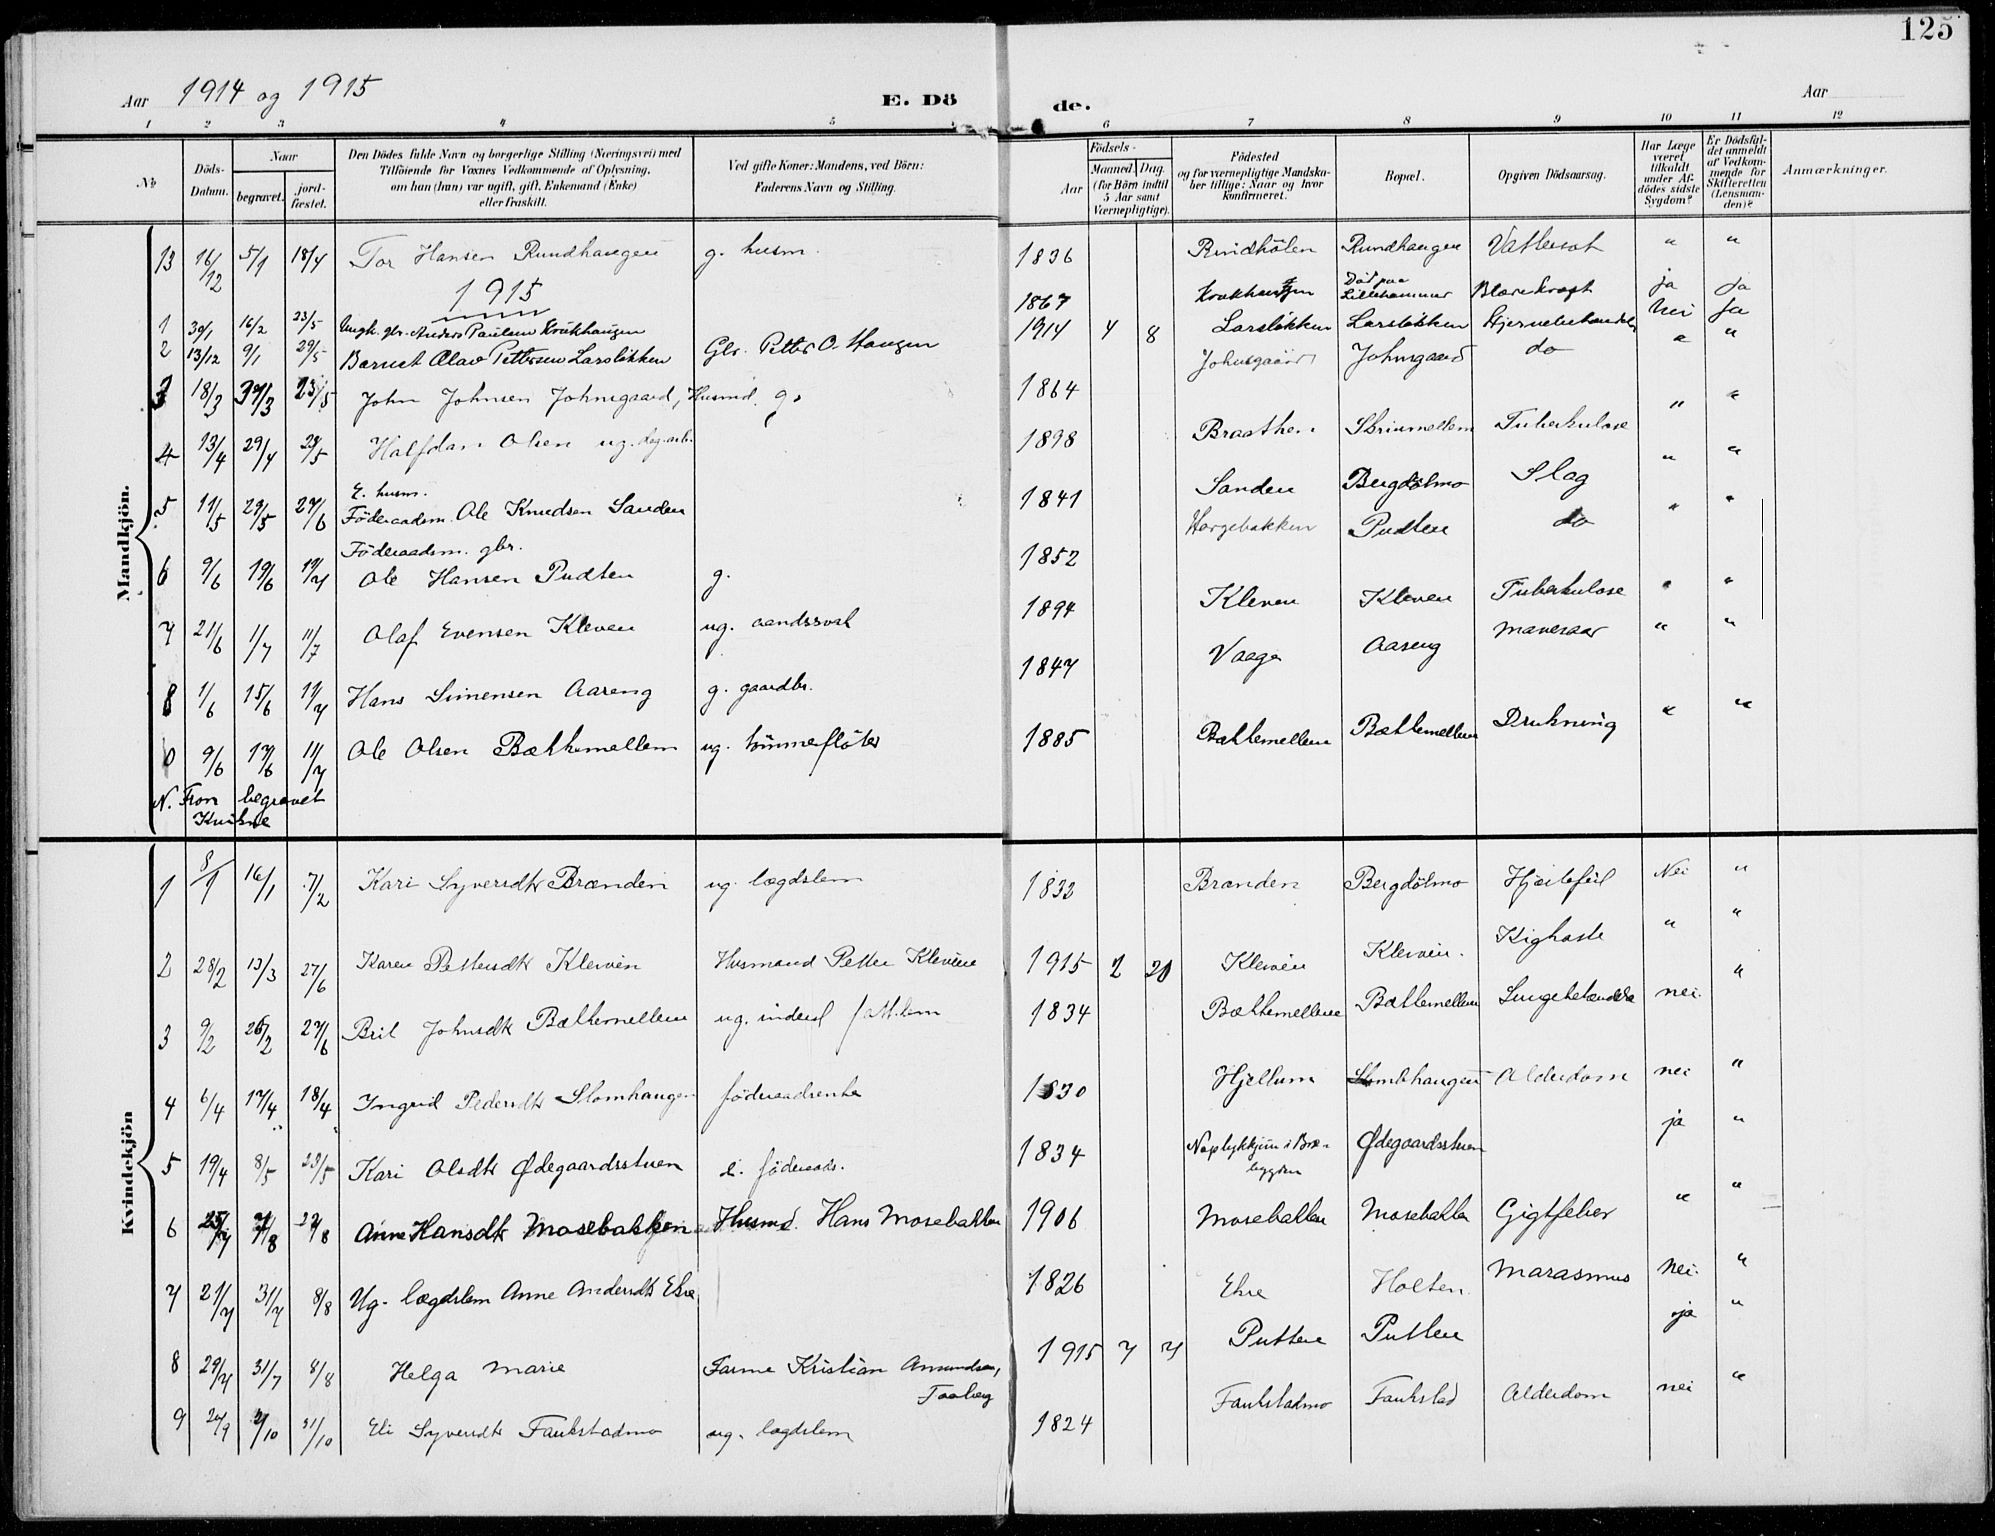 125
Aar 1914 og 1915 E. Dö de. Aar
1 2 3 4 5 6 7 8 9 10 11 12
No Döds-Datum. Naar begravet. jord-fæstet. Den Dödes fulde Navn og borgerlige Stilling (Næringsvei) med Tilföiende for Voxnes Vedkommende af Oplysning, om han (hun) var ugift, gift, Enkemand (Enke) eller fraskilt. Ved gifte Koner: Mandens, ved Börn: Faderens Navn og Stilling. Födsels- Aar Maaned. Dag. (for Börn indtil 5 Aar samt Værnepligtige). Födested og for værnepligtige Mandskaber tillige: Naar og hvor konfirmeret. Bopæl. Opgiven Dödsaarsag. Har Læge været tilkaldt under Afdödes sidste Sygdom? Er Dödsfaldet anmeldt af Vedkommende for Skifteretten (Lensmanden)? Anmærkninger.
Mandkjön.
13 16/12 5/1 18/4 Tor Hansen Rundhaugen g. husm. 1836 Rindhölen Rundhaugen Vattersot " "
1915
1 30/1 16/2 23/5 Ungk. gbr. Anders Paulsen Krukhaugen 1867 Krukhaugen Död paa Lillehammer Blærekræft ja ja
2 13/12 9/1 29/5 Barnet Olav Pettersen Larslökken Gbr. Petter O. Haugen 1914 4 8 Larslökken Larslökken Hjernebetændelse Nei ja
3 18/3 30/3 23/5 John Johnsen Johnsgaard, Husmd. g. 1864 Johnsgaard Johnsgaard do " "
4 13/4 29/4 23/5 Halfdan Olsen ug. dag.arb. 1898 Braathen Skriumellem Tuberkulose " "
5 11/5 29/5 27/6 E. husm. Föderaadsm. Ole Knudsen Sanden 1841 Sanden Bergdölmo Slag " "
6 9/6 19/6 11/7 Föderaadsm. gbr. Ole Hansen Pudten g. 1852 Horgebakken Pudten do " "
7 21/6 1/7 11/7 Olaf Evensen Kleven ug. aandssvak 1894 Kleven Kleven Tuberkulose " "
8 1/6 15/6 11/7 Hans Simensen Aareng g. gaardbr. 1847 Vaage Aaseng Mavesaar " "
0 9/6 17/6 11/7 Ole Olsen Bækkemellem ug. tömmerflöter 1885 Bækkemellem Bækkemellem Drukning " "
N. Fron begravet
Kvikne
Kvindekjön
1 8/1 16/1 7/2 Kari Syversdtr Brænden ug. lægdslem 1832 Brænden Bergdölmo Hjertefeil Nei "
2 28/2 13/3 27/6 Karen Pettersdtr Kleven Husmand Petter Kleven 1915 2 20 Kleven Kleven. Kighoste " "
3 9/2 26/2 27/6 Brit Johnsdtr Bækkemellem ug. inderst 1834 Bækkemellem Bækkemellem Lungebetændelse nei. "
4 6/4 17/4 18/4 Ingrid Pedersdtr Slomhaugen föderaadsenke 1830 Hjellum Slombhaugen Alderdom nei "
5 19/4 8/5 23/5 Kari Olsdtr Ødegaardsstuen e. föderaads. 1834 Ødegaardsstuen ja "
6 25/7 7/8 29/8 Anne Hansdtr Mosebakken Husmd. Hans Mosebakken 1906 Mosebakken Mosebakken Gigtfeber " "
7 21/7 31/7 8/8 Ug. lægdslem Anne Andersdtr Ehre 1826 Ehre Holten. Marasmus nei. "
8 29/7 31/7 8/8 Helga Marie Kristian Amundsen, Faaberg 1915 7 7 Putten Putten ja "
9 20/9 2/10 31/10 Eli Syversdtr Faukstadmo ug. lægdslem 1824 Faukstadmo Faukstad Alderdom nei "